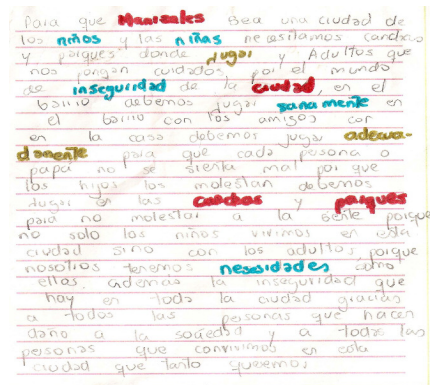 Para que Manizales sea una ciudad de
los niños y las niñas necesitamos canchas
y parques donde jugar y Adultos que
nos pongan cuidados por el mundo
de inseguridad de la ciudad, en el
barrio debemos jugar sanamente en
el barrio con los amigos cor
en la casa debemos jugar adecua-
damente para que cada persona o
papá no se sienta mal por que
los hijos los molestan debemos
jugar en las canchas y parques
para no molestar a la gente porque
no solo los niños vivimos en esta
ciudad sino con los adultos, porque
nosotros tenemos nesesidades como
ellos, además la inseguridad que
hay en toda la ciudad gracias
a todos las personas que hacen
daño a la sociedad y a todas las
personas que convivimos en esta
ciudad que tanto queremos